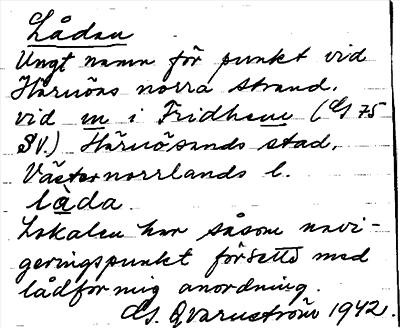 Lådan
Ungt namn för punkt vid
Härnöns norra strand.
vid m i Fridhem (G 75
SV.) Härnösands stad.
Västernorrlands l.
låda.
Lokalen har såsom navi-
geringspunkt försetts med
lådformig anordning.
G. Qvarnström 1942.